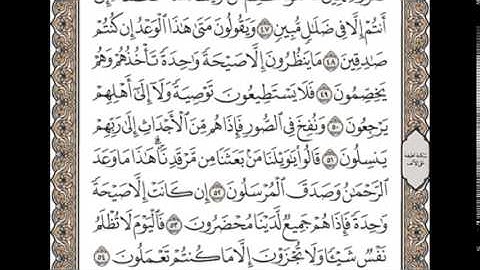 أَنتُمْ إِلَّا فِى ضَلَٰلٍ مُّبِينٍ ٤٧ وَيَقُولُونَ مَتَىٰ هَٰذَا ٱلْوَعْدُ إِن كُنتُمْ
صَٰدِقِينَ ٤٨ مَا يَنظُرُونَ إِلَّا صَيْحَةً وَٰحِدَةً تَأْخُذُهُمْ وَهُمْ
يَخِصِّمُونَ ٤٩ فَلَا يَسْتَطِيعُونَ تَوْصِيَةً وَلَآ إِلَىٰٓ أَهْلِهِمْ
يَرْجِعُونَ ٥٠ وَنُفِخَ فِى ٱلصُّورِ فَإِذَا هُم مِّنَ ٱلْأَجْدَاثِ إِلَىٰ رَبِّهِمْ
يَنسِلُونَ ٥١ قَالُوا۟ يَٰوَيْلَنَا مَنۢ بَعَثَنَا مِن مَّرْقَدِنَا ۜ ۗ هَٰذَا مَا وَعَدَ
ٱلرَّحْمَٰنُ وَصَدَقَ ٱلْمُرْسَلُونَ ٥٢ إِن كَانَتْ إِلَّا صَيْحَةً
وَٰحِدَةً فَإِذَا هُمْ جَمِيعٌ لَّدَيْنَا مُحْضَرُونَ ٥٣ فَٱلْيَوْمَ لَا تُظْلَمُ
نَفْسٌ شَيْـًٔا وَلَا تُجْزَوْنَ إِلَّا مَا كُنتُمْ تَعْمَلُونَ ٥٤